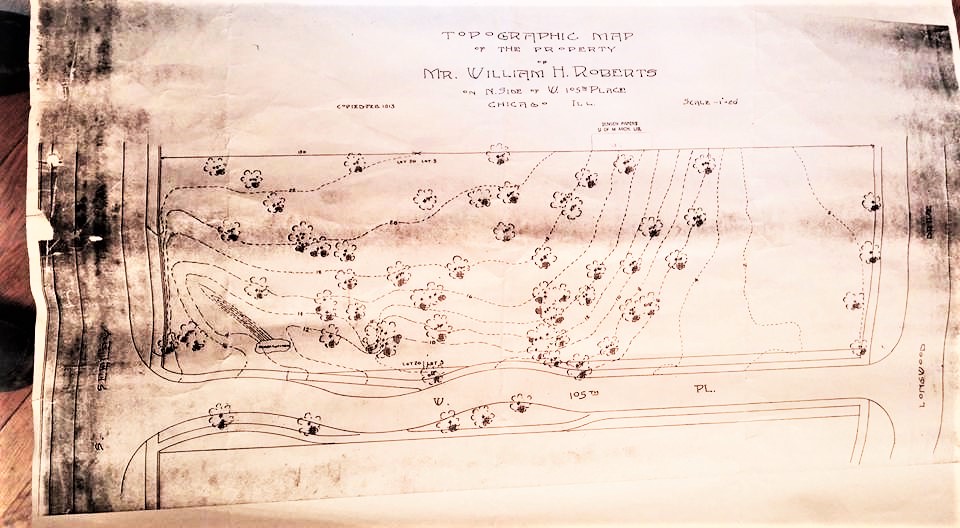 TOPOGRAPHIC MAP
OF THE PROPERTY
OF
MR. WILLIAM H. ROBERTS
ON N. SIDE OF W. 105TH PLACE
CHICAGO ILL.
COPIED FEB. 1913
SCALE - 1"=20'
JENSEN PAPERS
U OF M ARCH. LIB.
LOT 20 LOT 3
22
20
18
16
12
10
LOT 20 LOT 3
W. 105TH PL.
S.
LONGWOOD